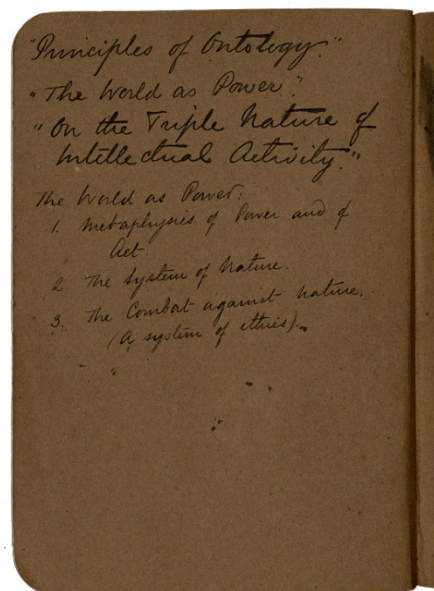 "Principles of Ontology."
"The World as Power".
"On the Triple Nature of
Intellectual Activity."
The World as Power:
1. Metaphysics of Power and of
Act.
2. The System of Nature.
3. The Combat against Nature.
(A system of ethics).